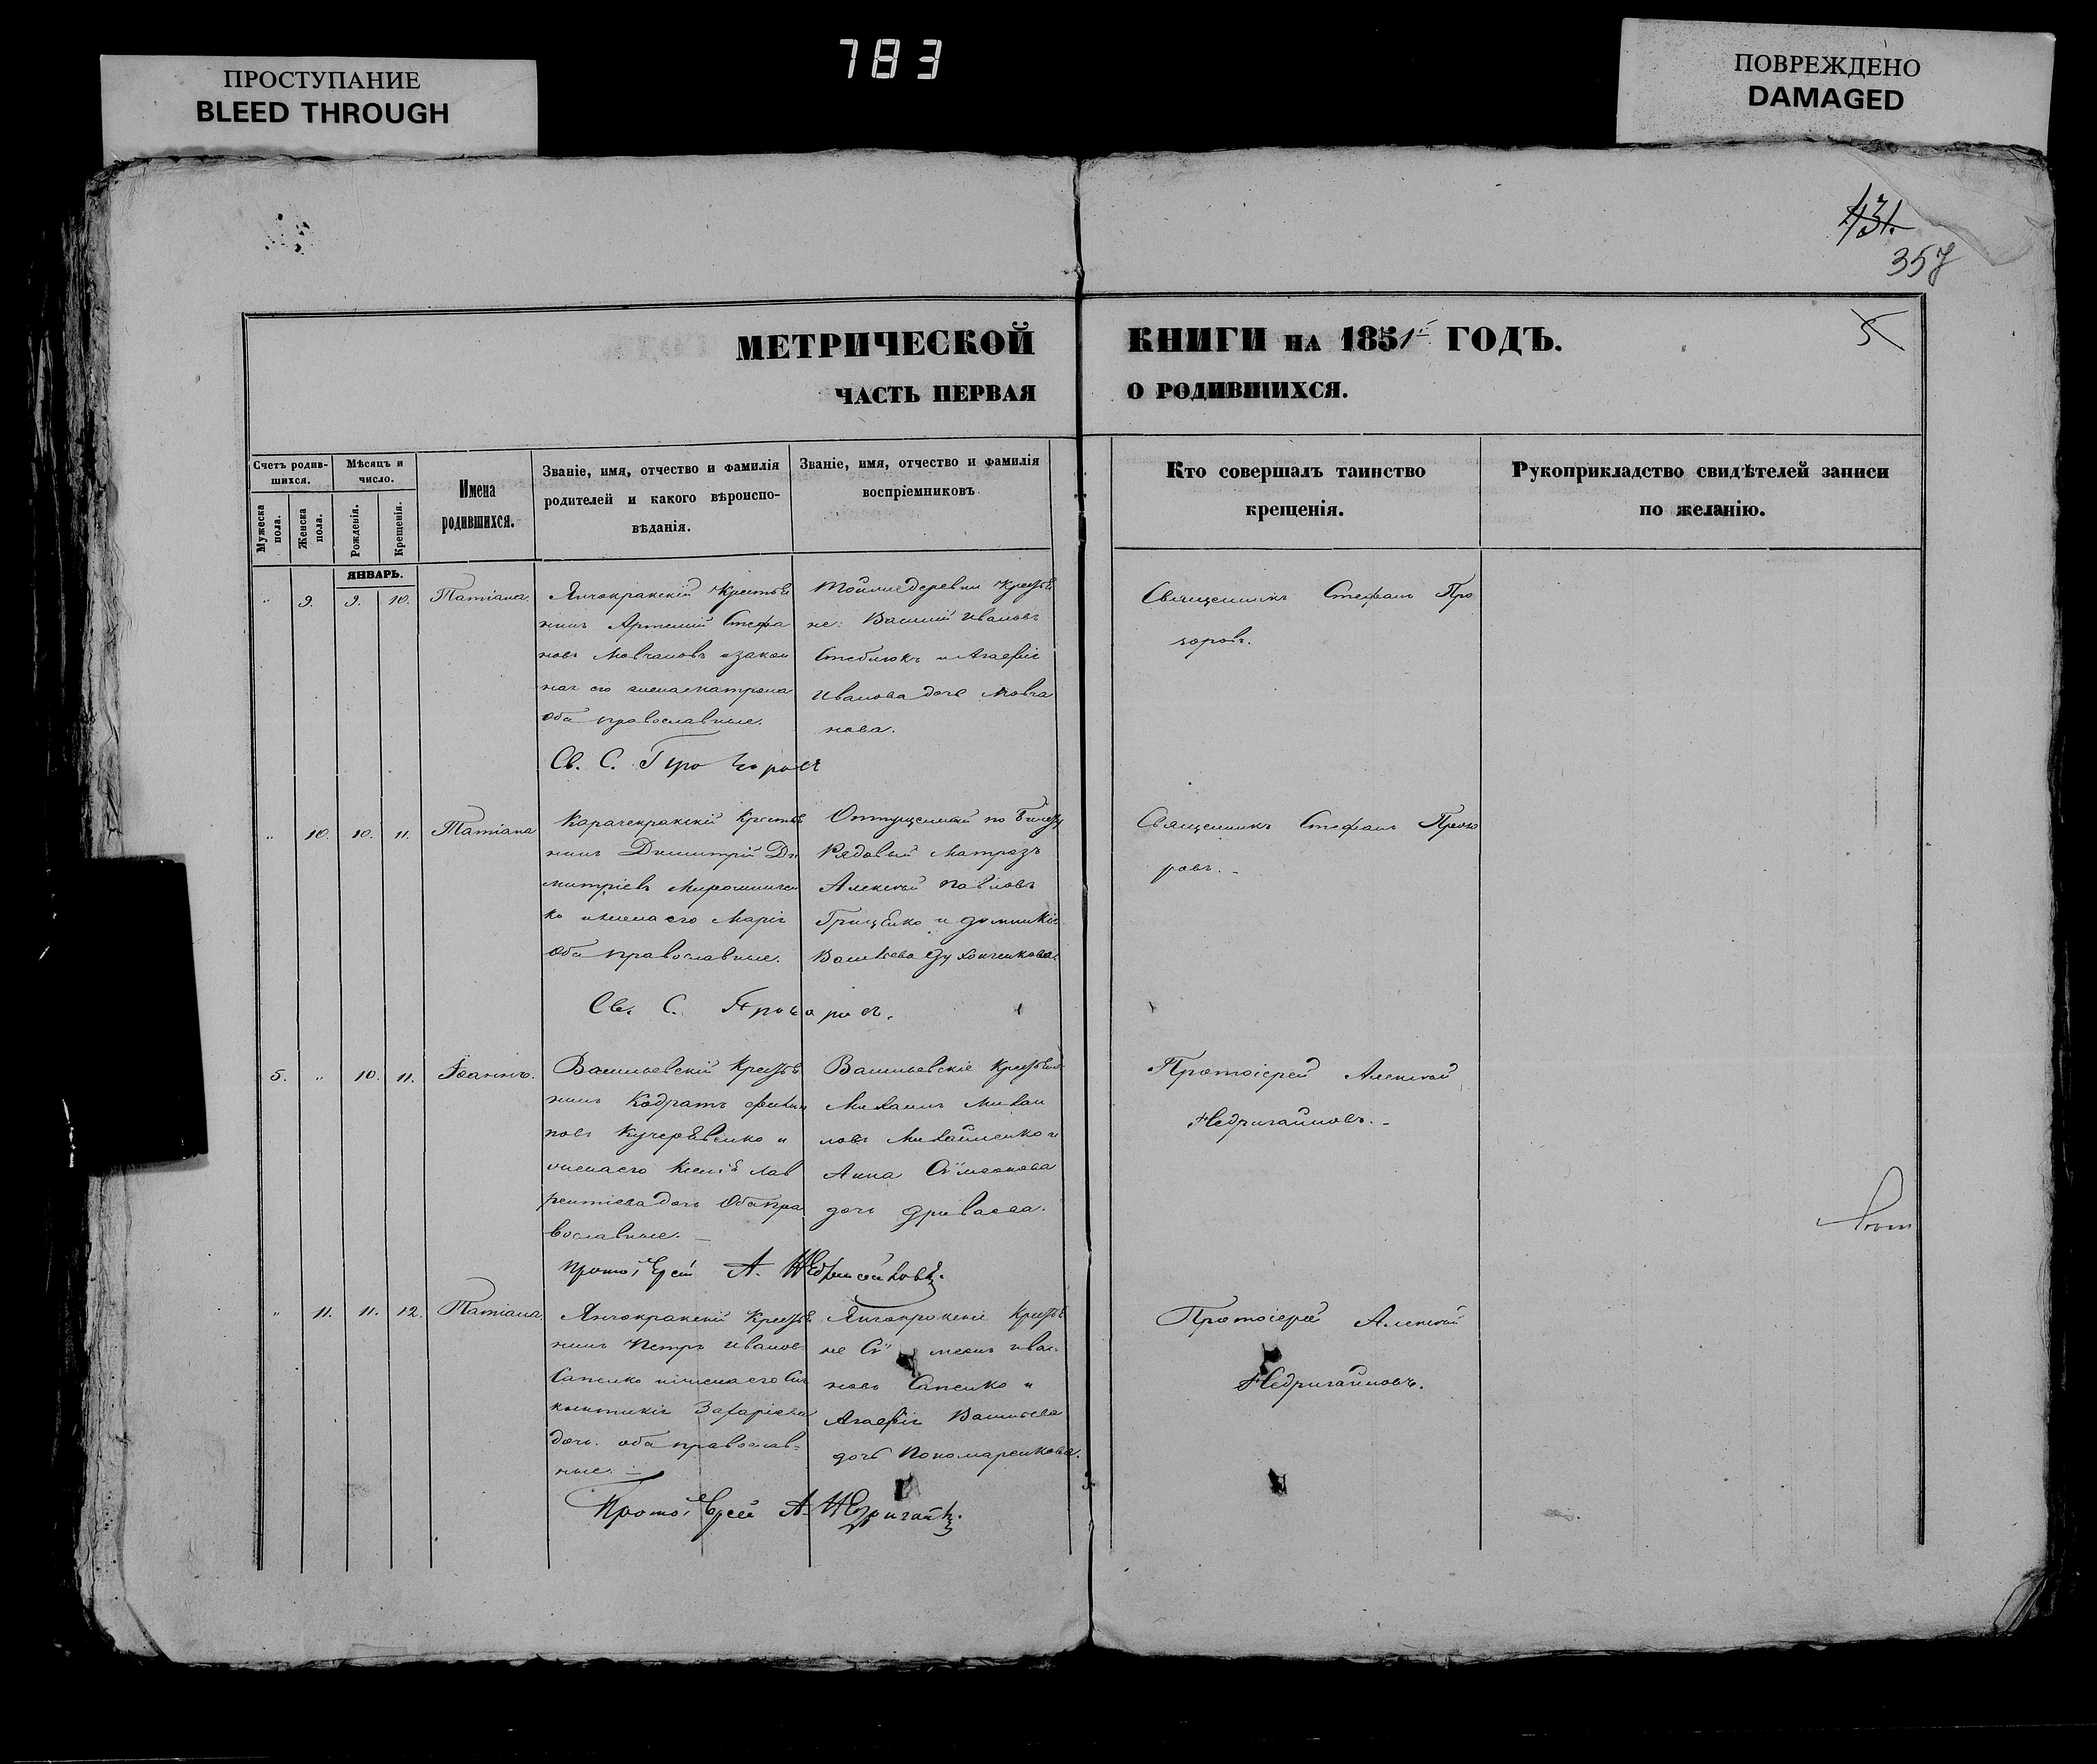 783
ПРОСТУПАНИЕ
BLEED THROUGH
ПОВРЕЖДЕНО
DAMAGED
431.
357
5
МЕТРИЧЕСКОЙ КНИГИ НА 1851 ГОДЪ.
ЧАСТЬ ПЕРВАЯ О РОДИВШИХСЯ.
Счетъ родив-
шихся.
Мужеска
пола.
Женска
пола.
Мѣсяцъ и
число.
Рожденія.
Крещенія.
Имена
родившихся.
Званіе, имя, отчество и фамилія
родителей и какого вѣроиспо-
вѣданія.
Званіе, имя, отчество и фамилія
воспріемниковъ.
Кто совершалъ таинство
крещенія.
Рукоприкладство свидѣтелей записи
по желанію.
ЯНВАРЬ.
" 9. 9. 10. Татіана.
Янчокракскій Крестья
нинъ Артемій Стефа
новъ Мовчановъ и закон
ная его жена Матрона
оба православные.
Тойже деревни Крестья
не: Василій Ивановъ
Стеблюкъ и Агафія
Иванова дочь Мовча
нова.
Священникъ Стефанъ Про
хоровъ.
Св. С. Прохоровъ
" 10. 10. 11. Татіана
Карачекракскій Крестья
нинъ Димитрій Ди
митріевъ Мирошничен
ко и жена его Марія
оба православные.
Отпущенный по билету
Рядовый Матрозъ
Алексей Павловъ
Грищенко и Домникія
Священникъ Стефанъ Прохо
ровъ. -
Св. С. Прохоровъ.
5. " 10. 11. Іоаннъ.
Васильевскій Крестья
нинъ Кодратъ Филип
повъ Кучерявенко и
жена его Ксенія Лав
рентіева дочь Оба пра
вославные. -
Васильевскіе Крестьяне
Михаилъ Михаи
ловъ Михайленко и
Анна Сѵмеонова
дочь
Протоіерей Алексей
Недригайловъ. -
Протоіерей А. Недригайловъ.
" 11. 11. 12. Татіана.
Янчокракскій Крестья
нинъ Петръ Ивановъ
Сапенко и жена его Син
клитикія Захаріева
дочь. оба православ-
ные. -
Янчокракскіе Крестья
не Сѵмеонъ Ива-
новъ Сапенко и
Агафія Васильева
дочь Пономаренкова.
Протоіерей Алексей
Недригайловъ.
Протоіерей А. Недригайловъ.